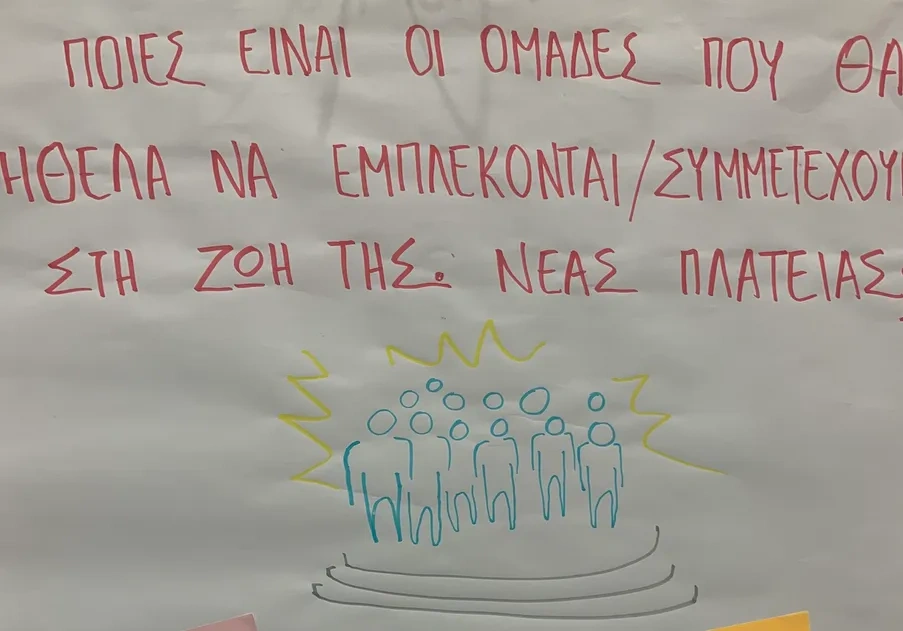 ΠΟΙΕΣ ΕΙΝΑΙ ΟΙ ΟΜΑΔΕΣ ΠΟΥ ΘΑ
ΗΘΕΛΑ ΝΑ ΕΜΠΛΕΚΟΝΤΑΙ/ΣΥΜΜΕΤΕΧΟΥΝ
ΣΤΗ ΖΩΗ ΤΗΣ. ΝΕΑΣ ΠΛΑΤΕΙΑΣ;